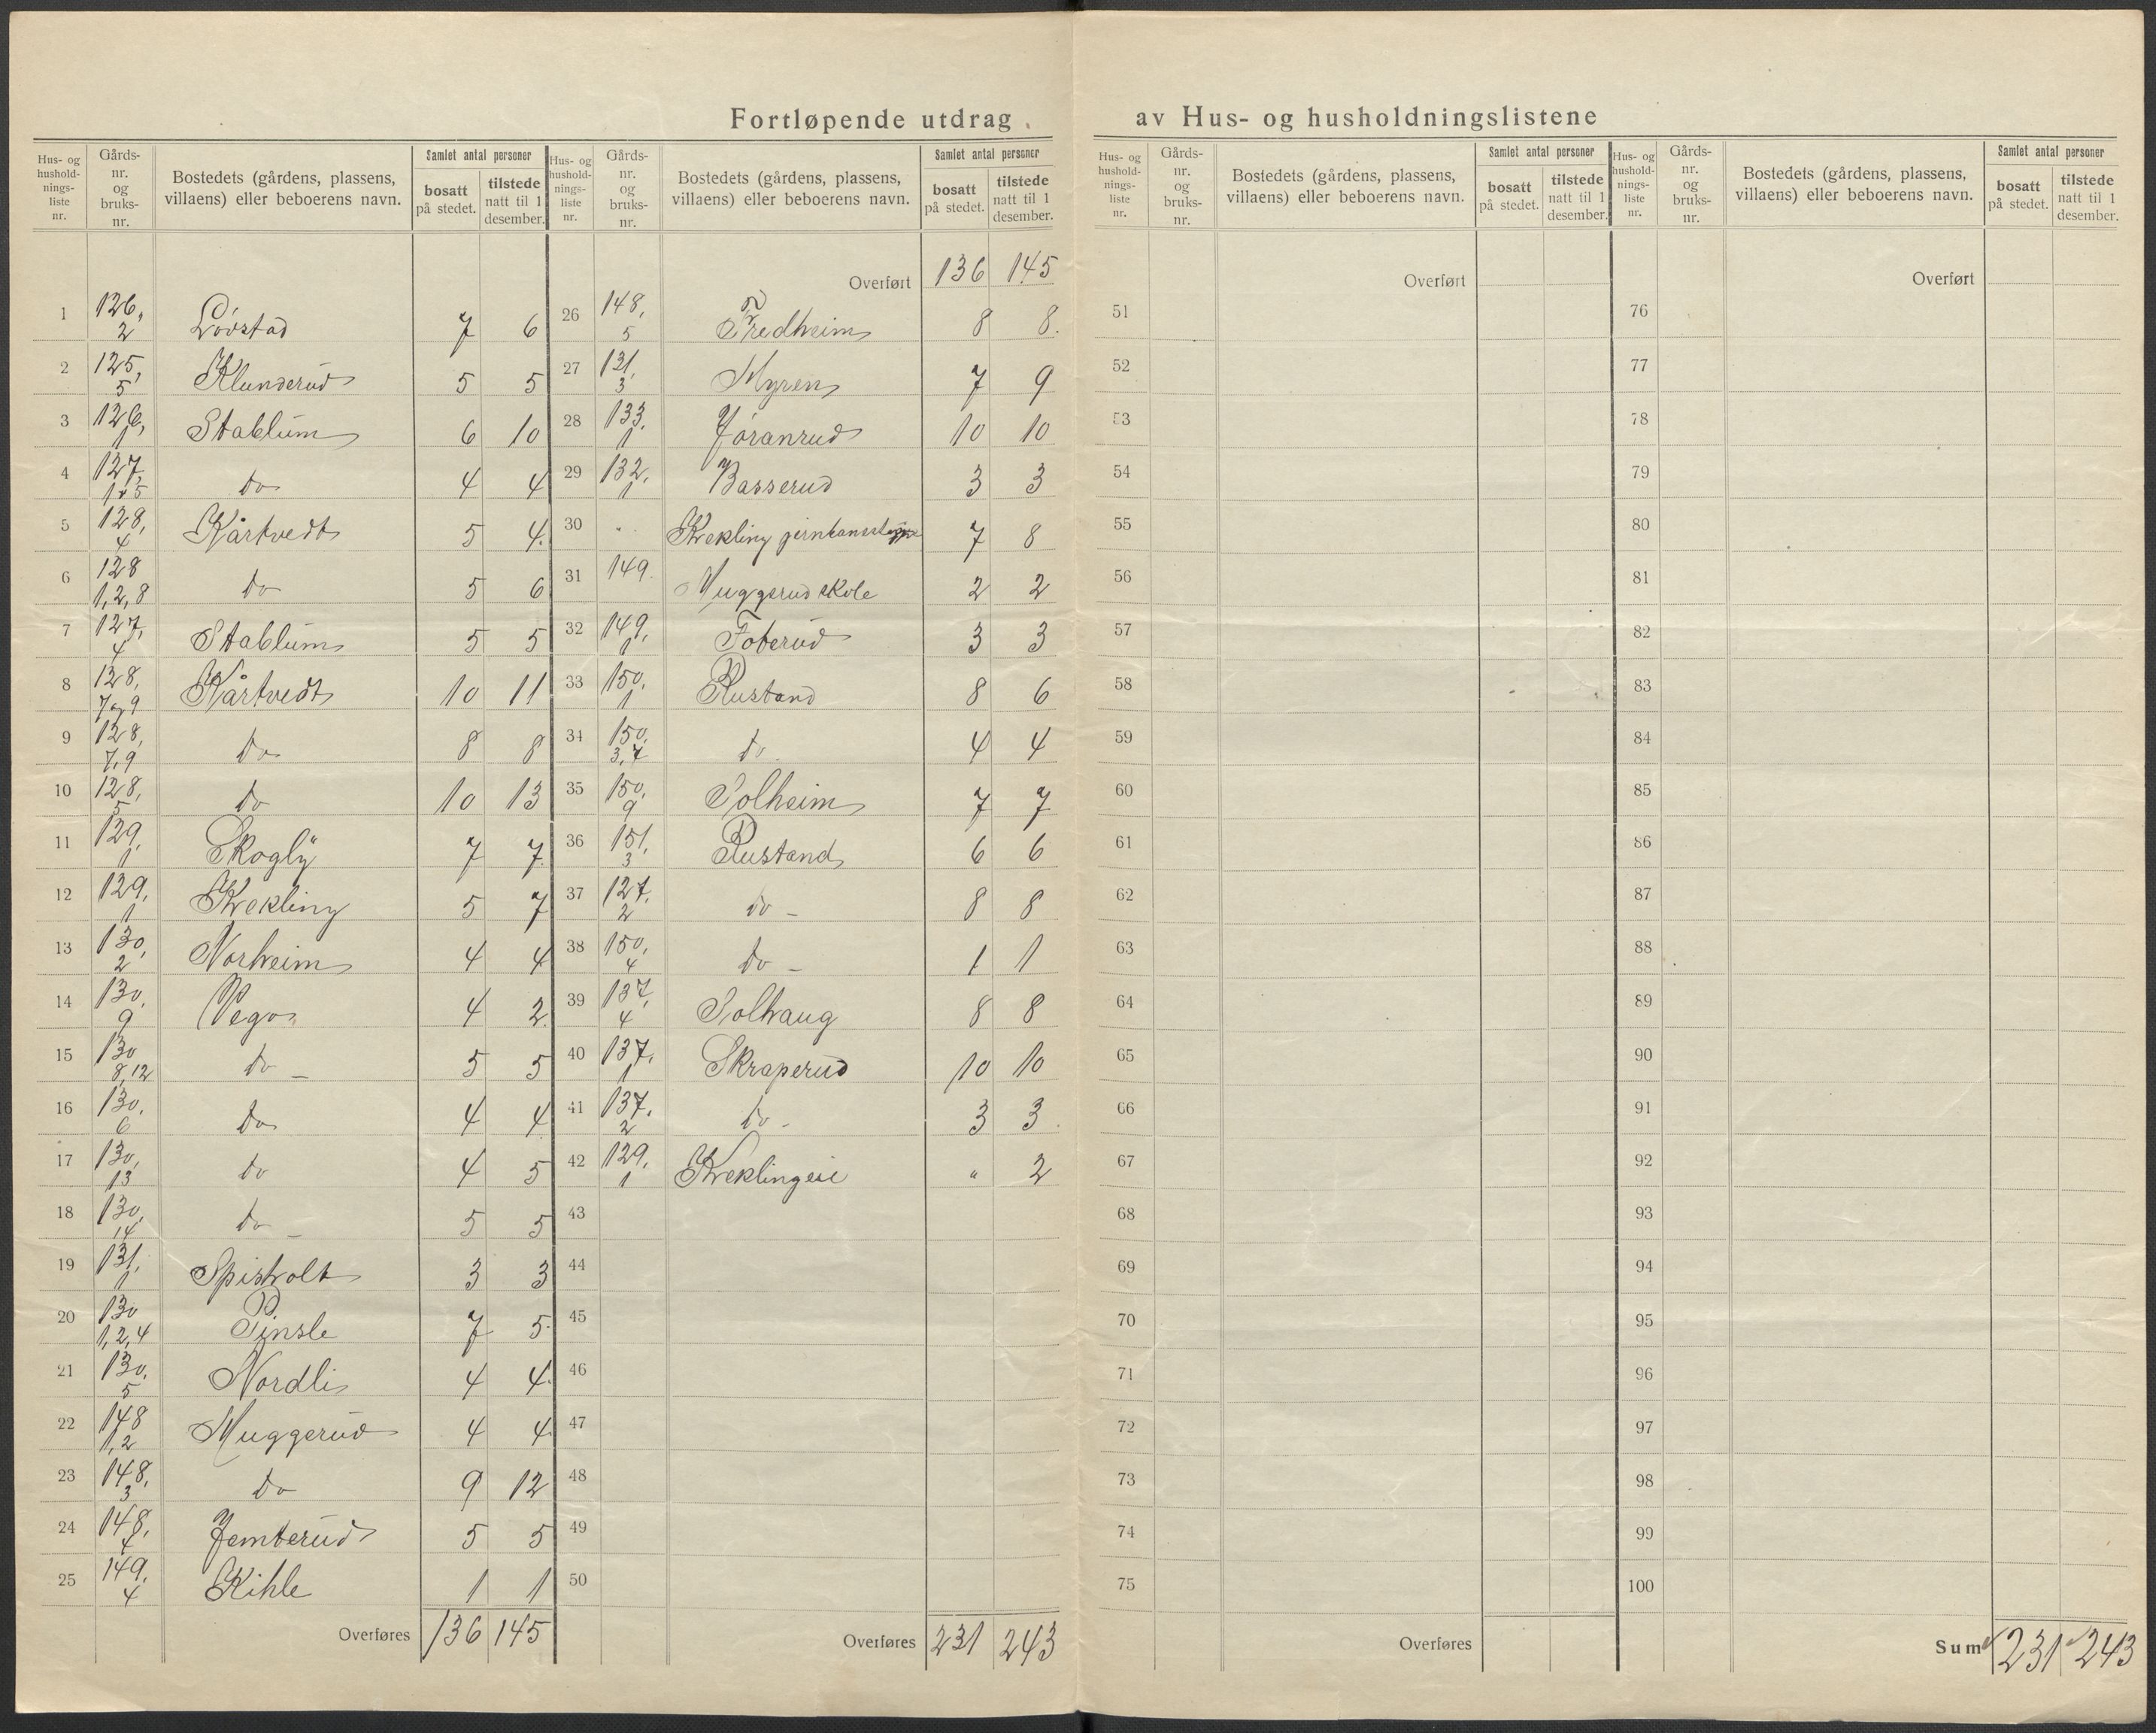 Fortløpende utdrag av Hus- og husholdningslistene
Hus- og husholdnings-liste nr. Gårds-nr. og bruks-nr. Bostedets (gårdens, plassens, villaens) eller beboerens navn. Samlet antal personer bosatt på stedet. tilstede natt til 1 desember.
1 126, 2 Lövstad 7 6
2 125, 5 Klunderud 5 5
3 126, 1 Stablum 6 10
4 127, 1 & 5 do 4 4
5 128, 4 Kårtvedt 5 4.
6 128 1, 2, 8 do 5 6
7 127, 4 Stablum 5 5
8 128, 7 og 9 Kårtvedt 10 11
9 128, 7, 9 do 8 8
10 128, 5 do 10 13
11 129, 1 Skogly 7 7.
12 129, 1 Krekling 5 7
13 130, 2 Norheim 4 4
14 130, 9 Vego 4 2.
15 130 8, 12 do 5 5
16 130, 6 do 4 4
17 130, 13 do 4 5
18 130, 14 do 5 5
19 131, 1 Spisholt 3 3
20 130 1, 2, 4 Pinsle 7 5.
21 130, 5 Nordli 4 4.
22 148 1, 2 Muggerud 4 4
23 148, 3 do 9 12
24 148, 4 Jemterud 5 5
25 149, 4 Kihle 1 1
Overføres 136 145
Hus- og husholdnings-liste nr. Gårds-nr. og bruks-nr. Bostedets (gårdens, plassens, villaens) eller beboerens navn. Samlet antal personer bosatt på stedet. tilstede natt til 1 desember.
Overført 136 145
26 148, 5 Fredheim 8 8.
27 131, 3 Myren 7 9
28 133, 1 Jöranrud 10 10
29 132, 1 Basserud 3 3
30 Krekling 7 8
31 149. Muggerud skole 2 2
32 149, 1 Foterud 3 3
33 150, 1 Rustand 8 6
34 150, 3, 7 do 4 4
35 150, 9 Solheim 7 7
36 151, 3 Rustand 6 6
37 127, 2 do - 8 8
38 150, 4 do - 1 1
39 137, 4 Solhaug 8 8
40 137, 1 Skraperud 10 10
41 137, 2 do - 3 3
42 129, 1 Kreklingeie " 2
43
44
45
46
47
48
49
50
Overføres 231 243
Hus- og husholdnings-liste nr. Gårds-nr. og bruks-nr. Bostedets (gårdens, plassens, villaens) eller beboerens navn. Samlet antal personer bosatt på stedet. tilstede natt til 1 desember.
Overført
51
52
53
54
55
56
57
58
59
60
61
62
63
64
65
66
67
68
69
70
71
72
73
74
75
Overføres
Hus- og husholdnings-liste nr. Gårds-nr. og bruks-nr. Bostedets (gårdens, plassens, villaens) eller beboerens navn. Samlet antal personer bosatt på stedet. tilstede natt til 1 desember.
Overført
76
77
78
79
80
81
82
83
84
85
86
87
88
89
90
91
92
93
94
95
96
97
98
99
100
Sum 231 243